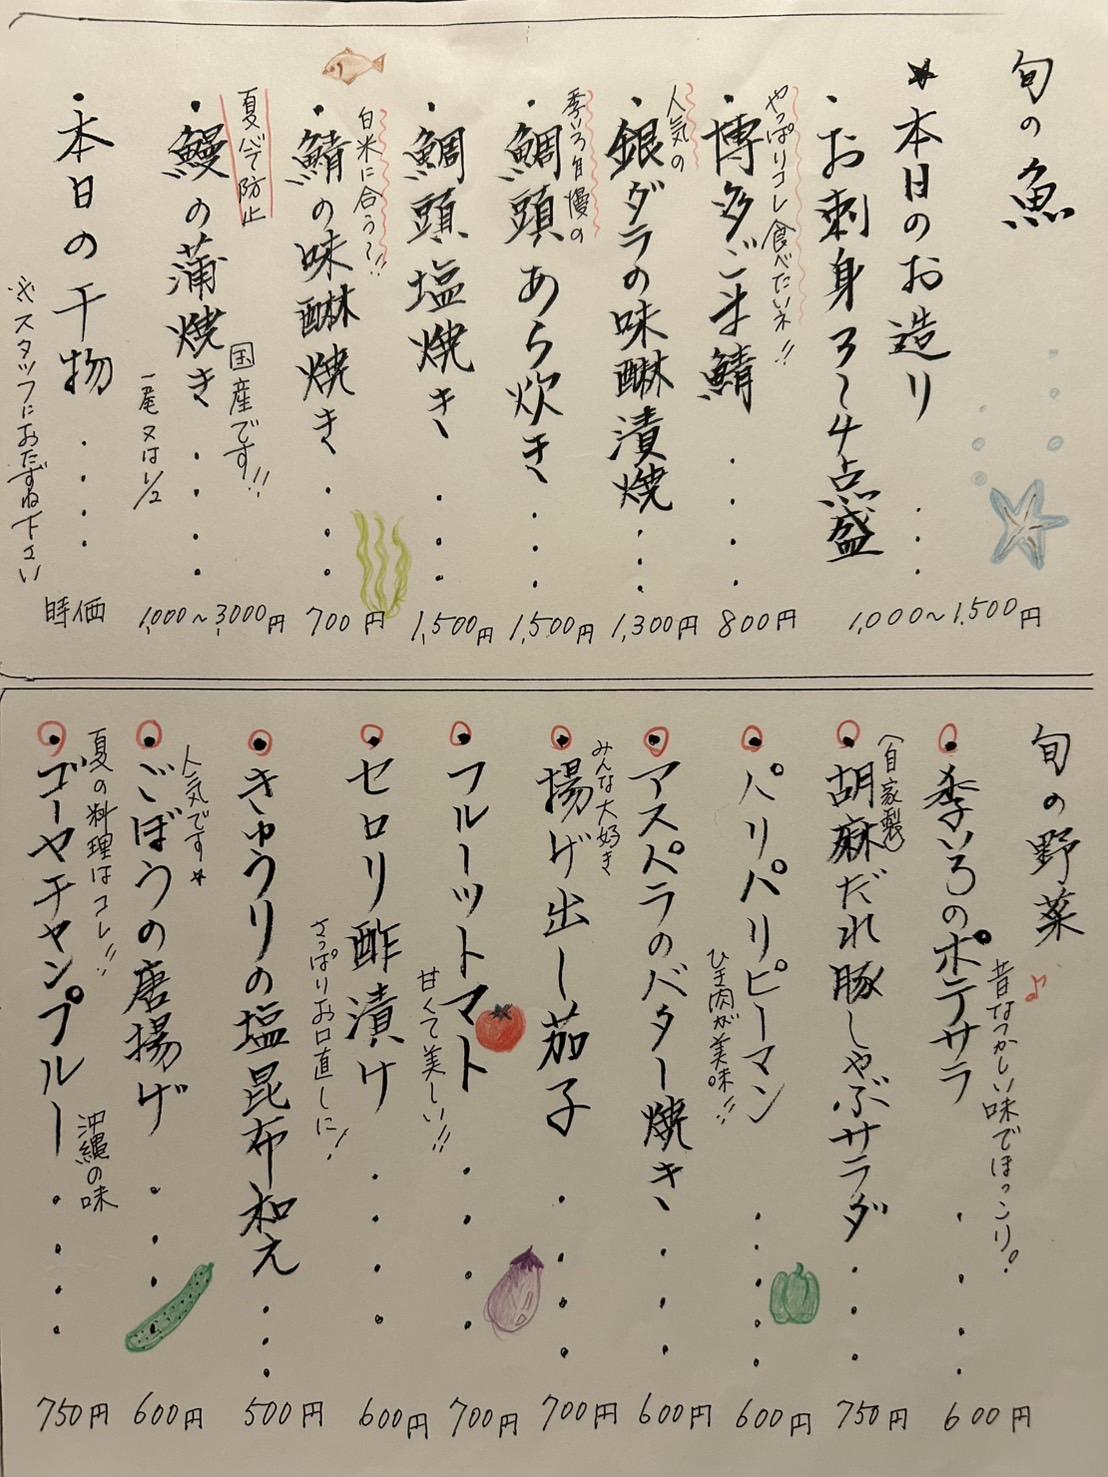 旬の魚
★本日のお造り
・お刺身3〜4点盛 ・・・ 1,000〜1,500円
やっぱりコレ食べたいネ!!
・博多ごま鯖 ・・・ 800円
人気の
・銀ダラの味醂漬焼 ・・・ 1,300円
季いろ自慢の
・鯛頭あら炊き ・・・・ 1,500円
・鯛頭塩焼き ・・・ 1,500円
白米に合う〜!!
・鯖の味醂焼き ・・・ 700円
夏バテ防止
・鰻の蒲焼き ・・・・ 1,000〜3,000円
国産です!!
一尾又は1/2
・本日の干物 ・・・・ 時価
※スタッフにおたずね下さい
旬の野菜♪
・季いろのポテサラ ・・・・ 600円
昔なつかしい味でほっこり!
(自家製)
・胡麻だれ豚しゃぶサラダ ・・・ 750円
・パリパリピーマン ・・・・ 600円
ひき肉が美味!!
・アスペラのバター焼き ・・・ 600円
みんな大好き
・揚げ出し茄子 ・・・・ 700円
・フルーツトマト ・・・・ 700円
甘くて美しい!!
・セロリ酢漬け ・・・・ 600円
さっぱりお口直しに!
・きゅうりの塩昆布和え ・・・ 500円
人気です★
・ごぼうの唐揚げ ・・・・ 600円
夏の料理はコレ!!
・ゴーヤチャンプルー ・・・・ 750円
沖縄の味